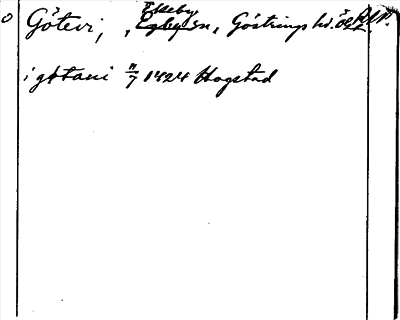 o Götevi, Ekeby sn, Göstrings hd. Ög
i gøtaui 11/7 1424 Hogstad